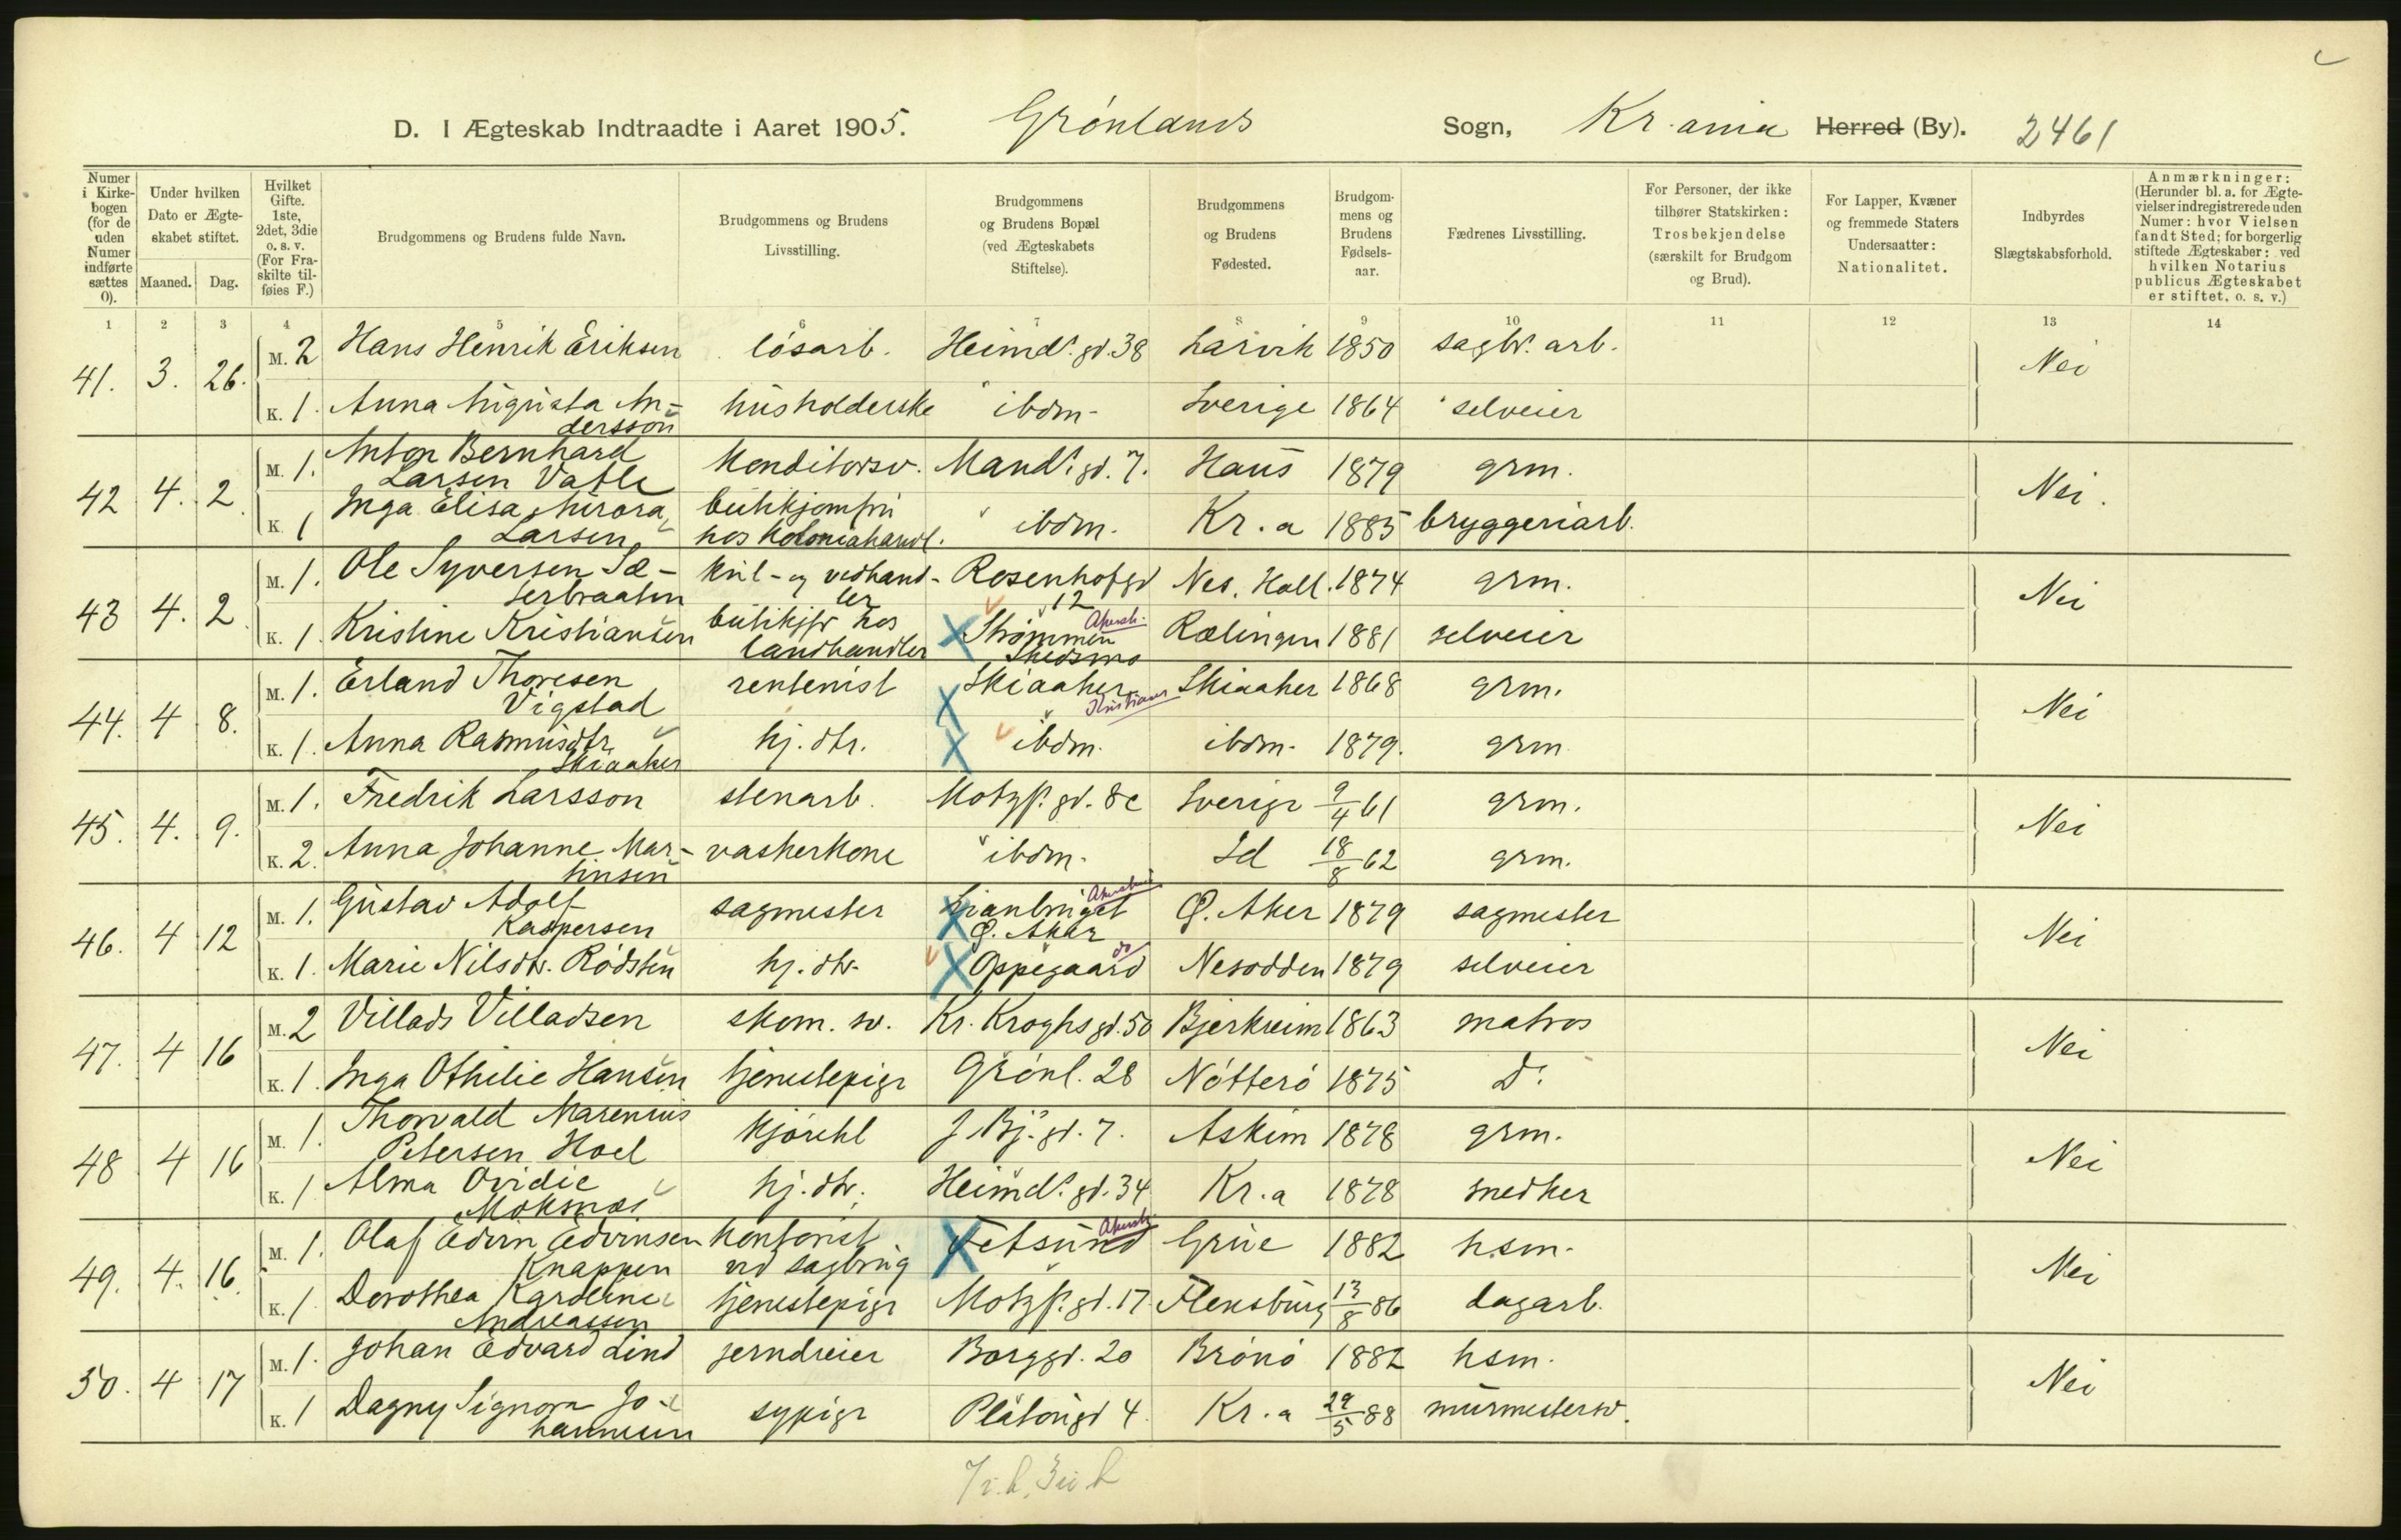 D. I Ægteskab Indtraadte i Aaret 1905. Grønlands Sogn, Kr.ania Herred (By). 2461
Numer i Kirkebogen (for de uden Numer indførte sættes 0).
Under hvilken Dato er Ægteskabet stiftet.
Maaned. Dag.
Hvilket Gifte. 1ste, 2det, 3die o. s. v. (For Fraskilte tilføies F.)
Brudgommens og Brudens fulde Navn.
Brudgommens og Brudens Livsstilling.
Brudgommens og Brudens Bopæl (ved Ægteskabets Stiftelse).
Brudgommens og Brudens Fødested.
Brudgommens og Brudens Fødselsaar.
Fædrenes Livsstilling.
For Personer, der ikke tilhører Statskirken: Trosbekjendelse (særskilt for Brudgom og Brud).
For Lapper, Kvæner og fremmede Staters Undersaatter: Nationalitet.
Indbyrdes Slægtskabsforhold.
Anmærkninger: (Herunder bl. a. for Ægtevielser indregistrerede uden Numer: hvor Vielsen fandt Sted; for borgerlig stiftede Ægteskaber: ved hvilken Notarius publicus Ægteskabet er stiftet, o. s. v.)
1 2 3 4 5 6 7 8 9 10 11 12 13 14
41. 3. 26. M. 2 Hans Henrik Eriksen løsarb. Heimd. gd. 38 Larvik 1850 sagbr. arb. Nei
K. 1. Anna Augusta An-
dersson husholderske ibdm. Sverige 1864 selveier
42 4. 2. M. 1. Anton Bernhard
Larsen Vatle Konditorsv. Mand. gd. 7. Haus 1879 grm. Nei.
K. 1 Inga Elisa Aurora
Larsen butikjomfru
hos Kolonialhandl. ibdm. Kr.a 1885 bryggeriarb.
43 4. 2 M. 1. Ole Syversen Sæ-
terbraaten Kul- og vedhand-
ler Rosenhofgd
12 Nes. Hall. 1874 grm. Nei
K. 1. Kristine Kristiansen butikjfr hos
landhandler Strømmen Akersh.
Skedsmo Rælingen 1881 selveier
44. 4 8. M. 1. Erland Thoresen
Vigstad rentenist Skiaaker
Kristians Skiaaker 1868 grm. Nei
K. 1. Anna Rasmusdtr
Skiaaker hj. dtr. ibdm. ibdm. 1879. grm
45. 4. 9. M. 1. Fredrik Larsson stenarb. Motzf. gd. 8c Sverige 9/4 61 grm. Nei
K. 2. Anna Johanne Mar-
tinsen vaskerkone ibdm. Id 18/8 62 grm.
46. 4 12 M. 1. Gustav Adolf
Kaspersen sagmester Lianbruget Akershus
Ø. Aker Ø. Aker 1879 sagmester Nei
K. 1. Marie Nilsdtr. Rødsten hj. dtr. Oppegaard do Nesodden 1879 selveier
47. 4 16 M. 2 Villads Villadsen skom. sv. Kr. Kroghs gd. 50 Bjerkreim 1863 matros Nei
K. 1. Inga Othilie Hansen tjenestepige Grønl. 28 Nøtterø 1875 Do
48 4 16 M. 1. Thorvald Marenius
Petersen Hoel Kjørekl J. Bj. gd. 7. Askim 1878 grm. Nei
K. 1 Alma Ovidie
Moksnæs hj. dtr. Heimd. gd. 34 Kr.a 1878 snedker
49. 4. 16. M. 1. Olaf Edvin Edvinsen
Knappen Kontorist
ved sagbrug Fetsund Akersh. Grue 1882 hsm. Nei
K. 1 Dorothea Kardeline
Andreassen tjenestepige Motzf. gd. 17. Flensburg 13/8 86 dagarb.
50. 4 17 M. 1. Johan Edvard Lind jerndreier Borggd. 20 Brønø 1882 hsm. Nei
K. 1 Dagny Signora Jo-
hannesen sypige Platougd 4. Kr.a 29/5 88 murmestersv.